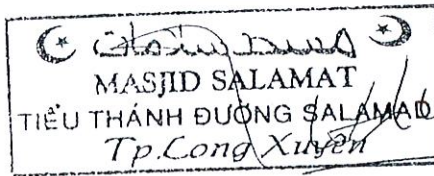 MASJID SALAMAT
TIỂU THÁNH ĐƯỜNG SALAMAD
Tp.Long Xuyên